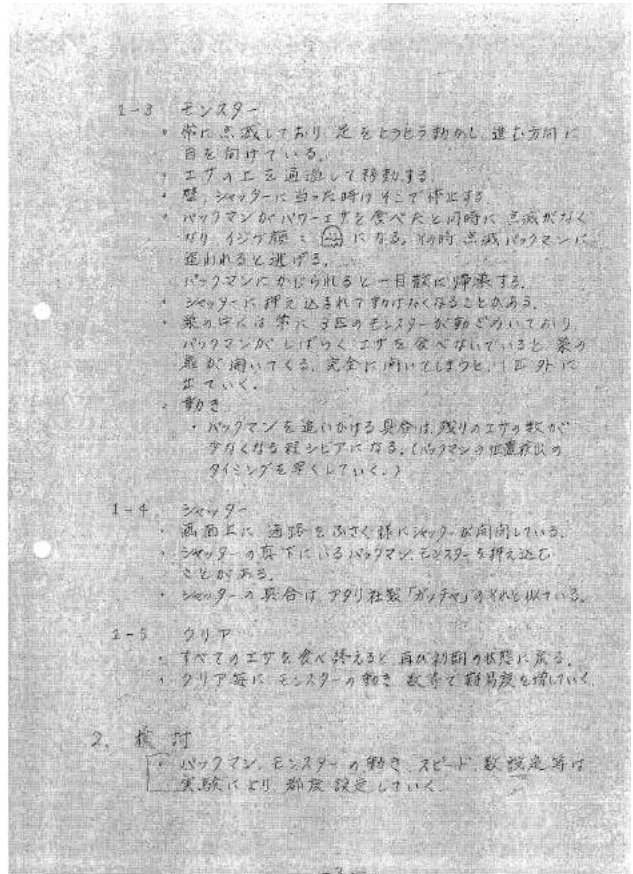 1-3 モンスター
・常に点滅しており 足をヒラヒラ動かし、進む方向に
目を向けている。
・エサの上を通過して移動する。
・壁、シャッターに当った時はそこで停止する
・パックマンがパワーエサを食べたと同時に 点滅がなく
なり イジケ顔 : になる。その時 点滅パックマンに
追われると逃げる。
パックマンにかじられると一目散に帰巣する。
・シャッターに押え込まれて動けなくなることがある。
・巣の中には常に3匹のモンスターが動きめいており、
パックマンがしばらくエサを食べないでいると、巣の
扉が開いてくる。完全に開いてしまうと、1匹外に
出ていく。
・動き
・パックマンを追いかける具合は、残りのエサの数が
少なくなる程シビアになる。(パックマンの位置検出の
タイミングを早くしていく。)
1-4 シャッター
・画面上に 通路をふさぐ様にシャッターが開閉している。
・シャッターの真下にいるパックマン、モンスターを押え込む
ことがある。
・シャッターの具合は、アタリ社製「ガッチャ」のそれと似ている。
1-5 クリア
・すべてのエサを食べ終えると 再び初期の状態に戻る。
・クリア毎に モンスターの動き 数等で難易度を増していく
2. 検討
・パックマン、モンスターの動き、スピード、数設定等は
実験により 都度設定していく